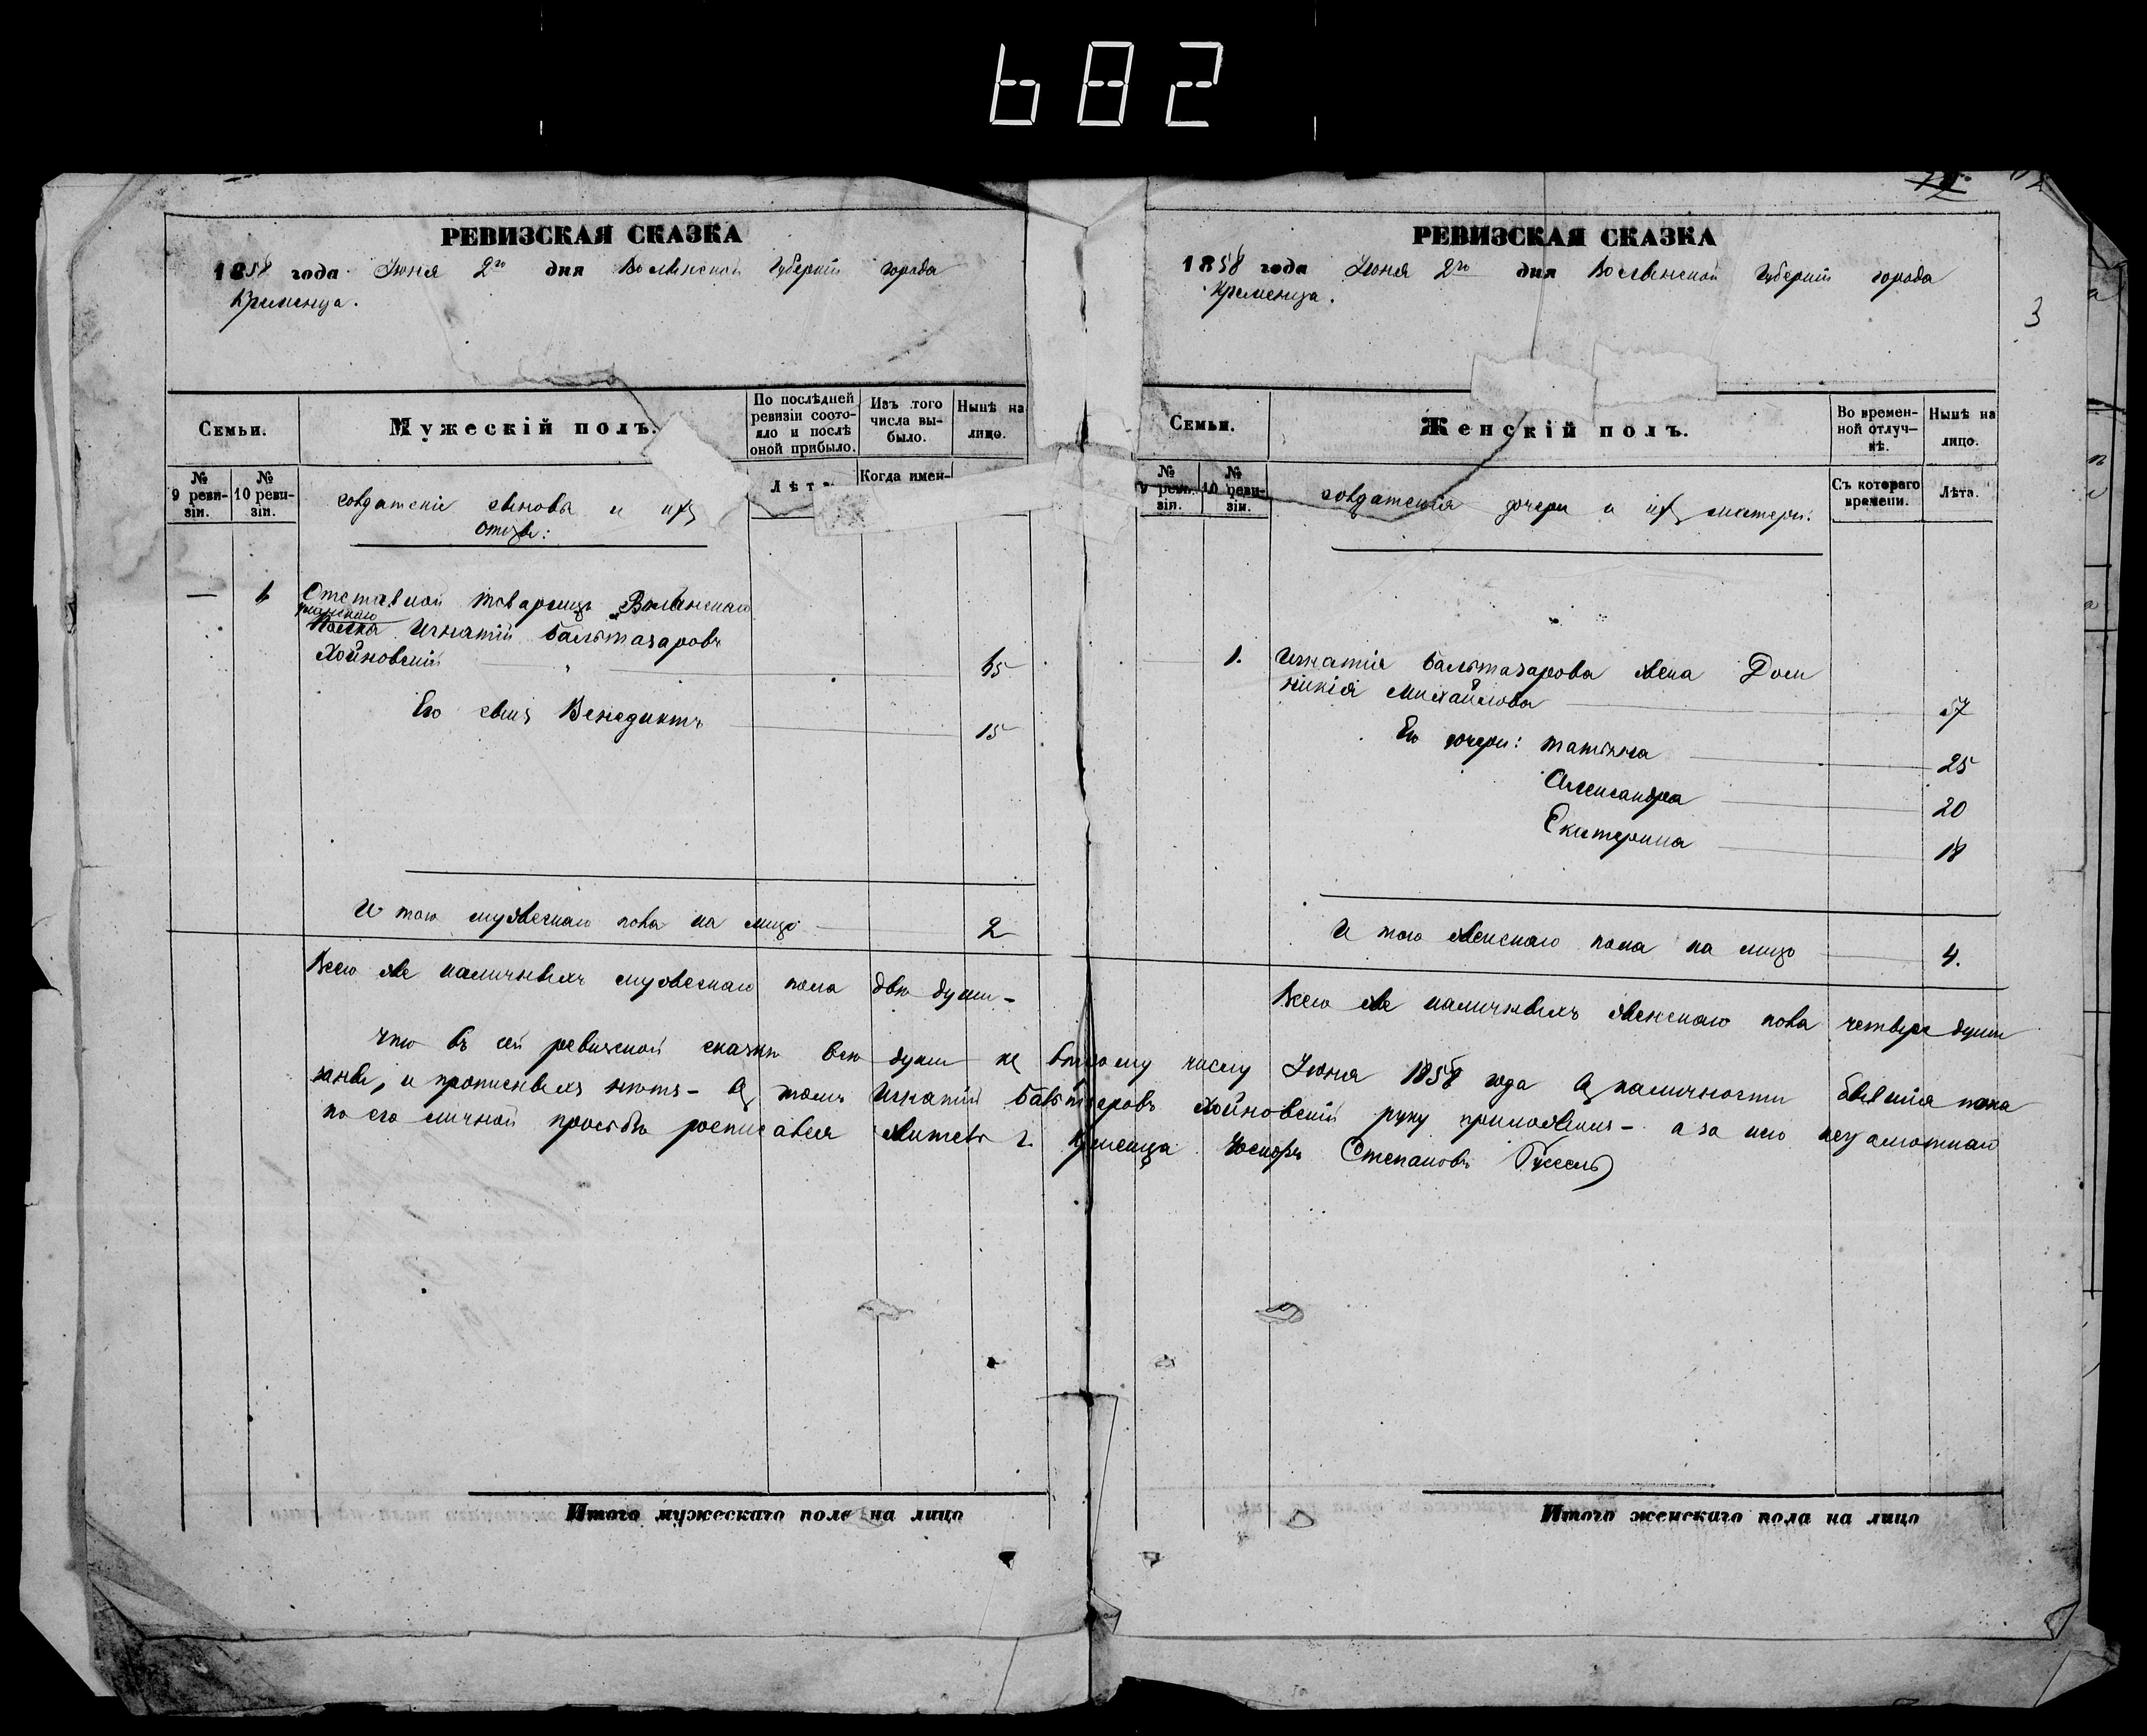 682
РЕВИЗСКАЯ СКАЗКА
1858 года Июня 2го дня Волынской Губерніи города
Кременца.
По послѣдней ревизіи состояло и послѣ оной прибыло.
Изъ того числа выбыло.
Нынѣ на лицо.
Семьи.
Мужескій полъ.
№ 9 ревизіи.
№ 10 ревизіи.
Лѣта
Когда имен-
солдатскіе сыновья и ихъ
отцы:
— 1 Отставной товарищъ Волынскаго
уланскаго
Полка Игнатій Бальтазаровъ
Хойновскій
Его сынъ Венедиктъ 15
И того мужескаго пола на лицо 2
Всего же наличныхъ мужескаго пола двѣ души-
РЕВИЗСКАЯ СКАЗКА
1858 года Июня 2го дня Волынской Губерніи города
Кременца.
3
Семьи.
Женскій полъ.
Во временной отлучкѣ.
Нынѣ на лицо.
№ 9 ревизіи.
№ 10 ревизіи.
Съ котораго времени.
Лѣта.
солдатскія дочери и ихъ матери:
1. Игнатія Бальтазарова жена Доми
никія Михайлова 57
Его дочери: Татьяна 25
Александра 20
Екатерина 18
И того женскаго пола на лицо 4.
Всего же наличныхъ женскаго пола четыре души
Что въ сей ревизской сказкѣ всѣ души ко второму числу Июня 1858 года въ наличности бывшія пока
заны, и прописныхъ нѣтъ- въ томъ Игнатій Бальтазаровъ Хойновскій руку приложилъ- а за него неграмотнаго
по его личной просьбѣ росписался житель г. Кременца Юсифъ Степановъ
Итого мужескаго пола на лицо
Итого женскаго пола на лицо